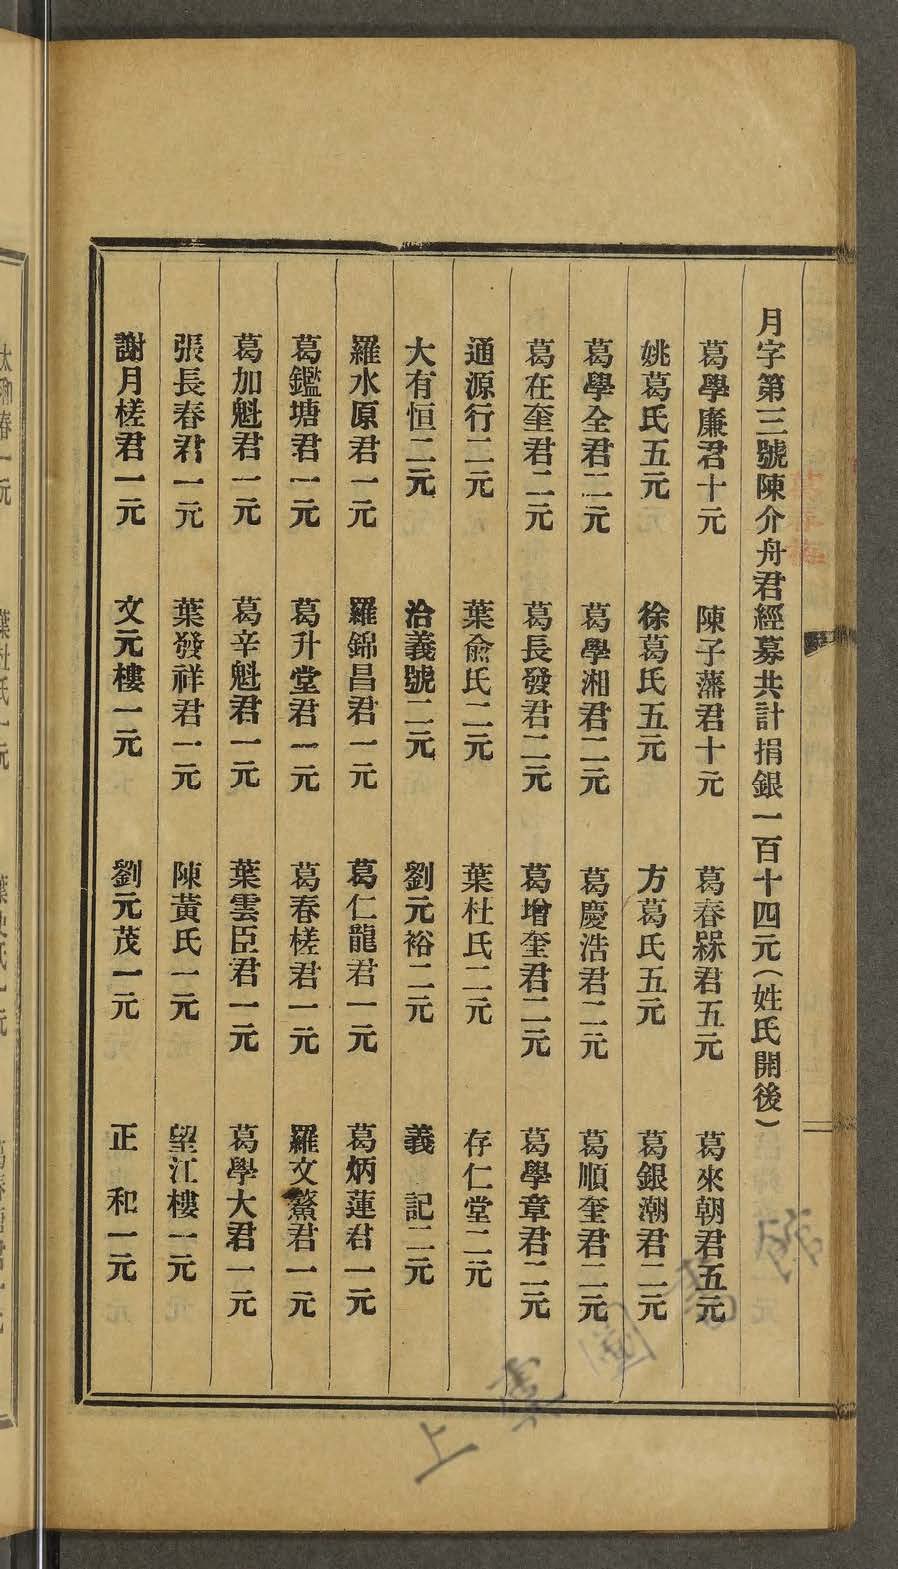 月字第三號陳介舟君經募共計捐銀一百十四元(姓氏開後)
葛學廉君十元　陳子藩君十元　葛春槑君五元　葛來朝君五元
姚葛氏五元　徐葛氏五元　方葛氏五元　葛銀潮君二元
葛學全君二元　葛學湘君二元　葛慶浩君二元　葛順奎君二元
葛在奎君二元　葛長發君二元　葛增奎君二元　葛學章君二元
通源行二元　葉俞氏二元　葉杜氏二元　存仁堂二元
大有恒二元　洽義號二元　劉元裕二元　義記二元
羅水原君一元　羅錦昌君一元　葛仁龍君一元　葛炳蓮君一元
葛鑑塘君一元　葛升堂君一元　葛春槎君一元　羅文鰲君一元
葛加魁君一元　葛辛魁君一元　葉雲臣君一元　葛學大君一元
張長春君一元　葉發祥君一元　陳黃氏一元　望江樓一元
謝月槎君一元　文元樓一元　劉元茂一元　正和一元
上虞圖書館